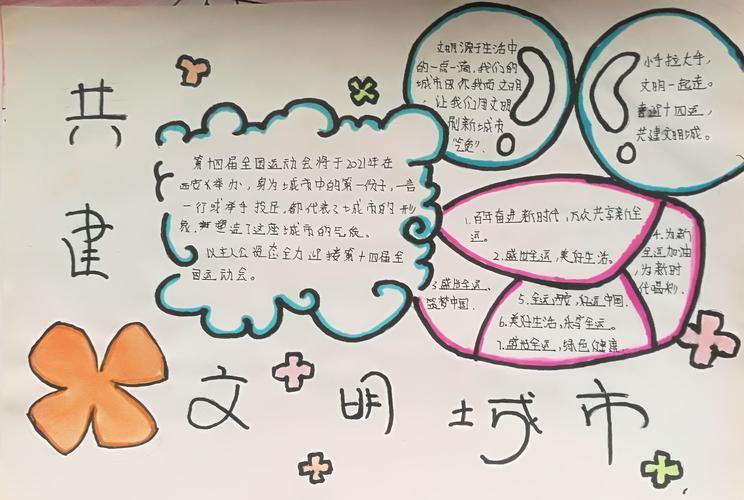 共
建
文明城市
文明源于生活中
的一点一滴，我们的
城市因你我而文明
，让我们用文明
刷新城市
气象！
小手拉大手，
文明一起走。
喜迎十四运，
共建文明城。
第十四届全国运动会将于2021年在
西安举办，身为城市中的第一份子，一言
一行或举手投足，都代表了城市的形
象，塑造了这座城市的气象。
以主人公姿态全力迎接第十四届全
国运动会。
1.百年奋进新时代，万众共享新全
运。
2.盛世全运，美好生活。
3.盛世全运，
筑梦中国.
4.为新
全运加油
，为新时
代喝彩.
5.全运西安，好运中国.
6.美好生活，乐享全运。
7.盛世全运，绿色健康